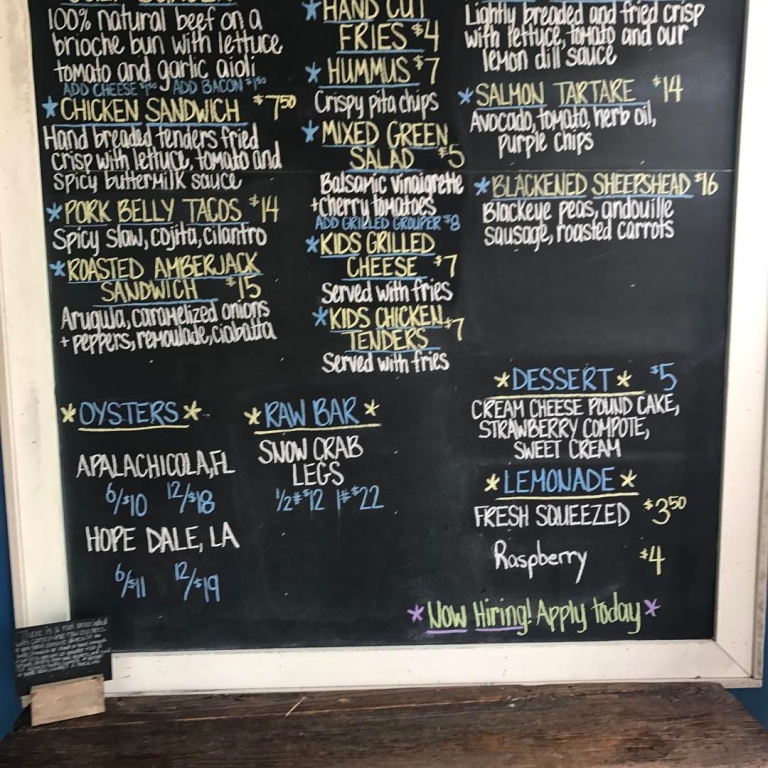 100% natural beef on a
brioche bun with lettuce
tomato and garlic aioli
ADD CHEESE $1.50 ADD BACON $1.50
*CHICKEN SANDWICH $7.50
Hand breaded tenders fried
crisp with lettuce, tomato and
spicy buttermilk sauce
*PORK BELLY TACOS $14
Spicy slaw, cojita, cilantro
*ROASTED AMBERJACK
SANDWICH $15
Arugula, caramelized onions
+ peppers, remoulade, ciabatta
*HAND CUT
FRIES $4
*HUMMUS $7
Crispy pita chips
*MIXED GREEN
SALAD $5
Balsamic vinaigrette
+cherry tomatoes
ADD GRILLED GROUPER $8
*KIDS GRILLED
CHEESE $7
Served with fries
*KIDS CHICKEN
TENDERS $7
Served with fries
Lightly breaded and fried crisp
with lettuce, tomato and our
lemon dill sauce
*SALMON TARTARE $14
Avocado, tomato, herb oil,
purple chips
*BLACKENED SHEEPSHEAD $16
Blackeye peas, andouille
sausage, roasted carrots
*OYSTERS*
APALACHICOLA, FL
6/$10 12/$18
HOPE DALE, LA
6/$11 12/$19
*RAW BAR*
SNOW CRAB
LEGS
1/2# $12 1# $22
*DESSERT* $5
CREAM CHEESE POUND CAKE,
STRAWBERRY COMPOTE,
SWEET CREAM
*LEMONADE*
FRESH SQUEEZED $3.50
Raspberry $4
*Now Hiring! Apply today*